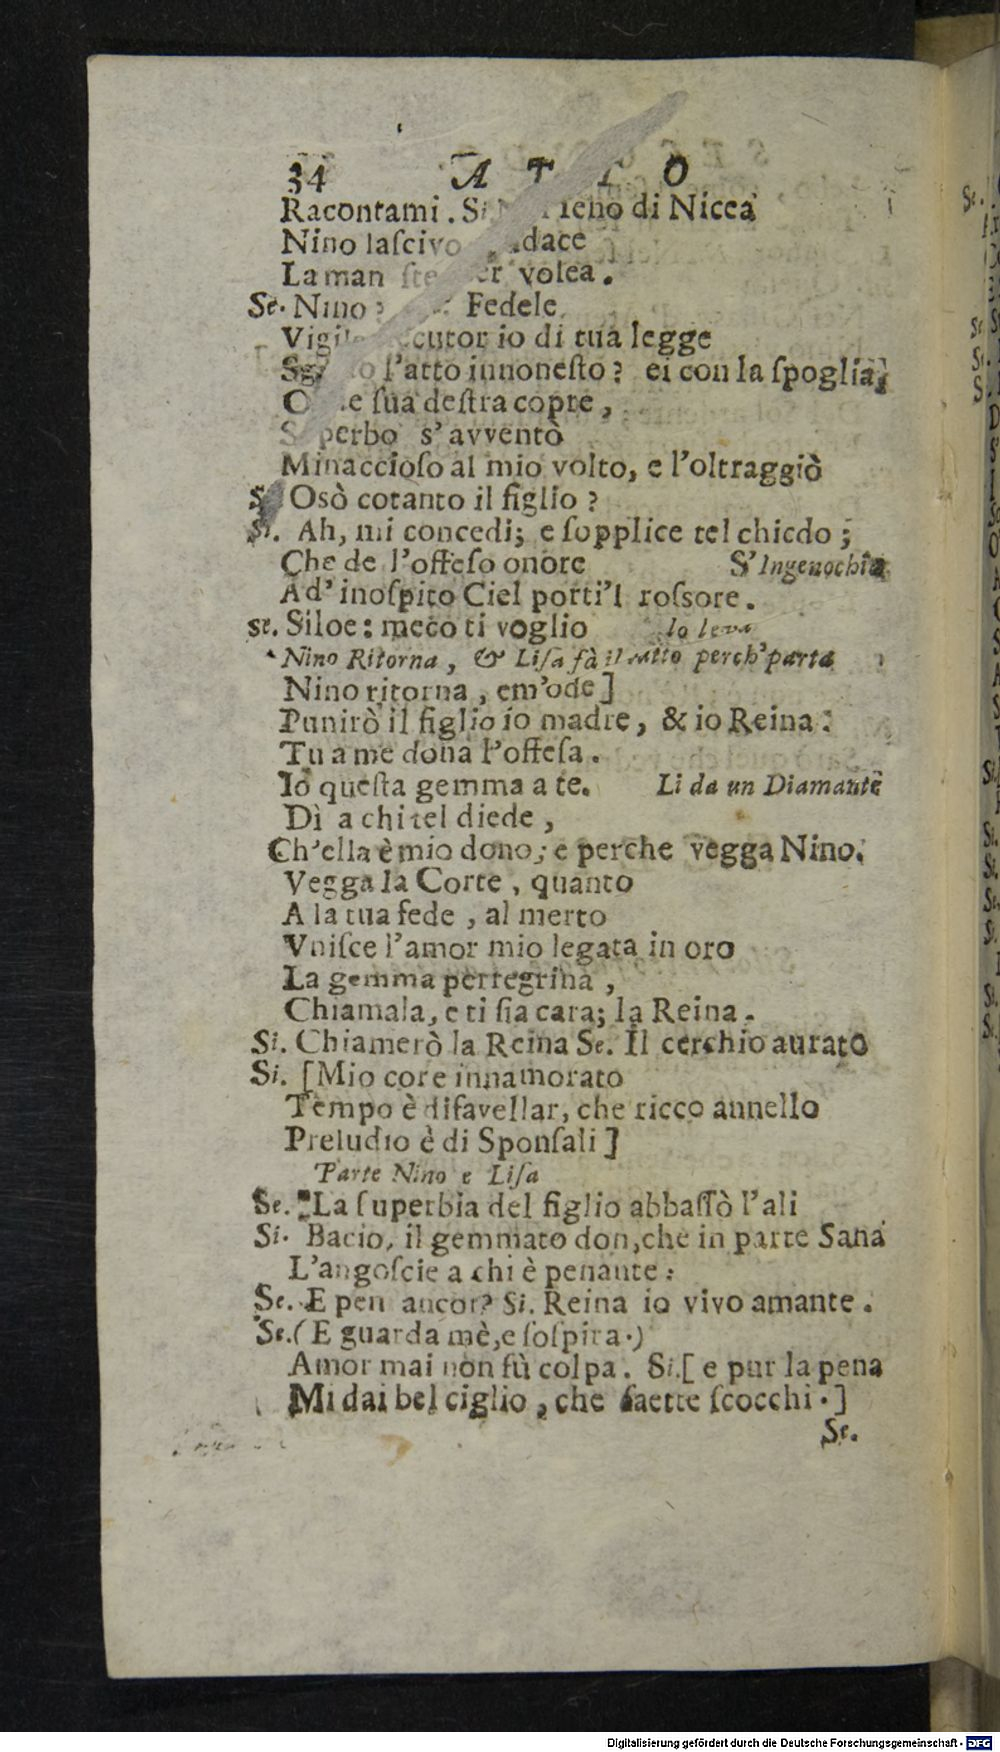 34 ATTO
Racontami. Si. ieno di Nicea
Nino laſcivo dace
La man volea.
Se. Nino? Fedele
Vigil cutor io di tua legge
l'atto innoneſto? ei con la ſpoglia,
ſua deſtra copre,
perbo s'avventò
Minaccioſo al mio volto, e l'oltraggiò
S Osò cotanto il figlio?
Si. Ah, mi concedi; e ſopplice tel chiedo;
Che de l'offeſo onore S'Ingenochia
Ad' inoſpito Ciel porti'l roſsore.
se. Siloe: meco ti voglio lo leva
Nino Ritorna, & Liſa fà il atto perch'parta
Nino ritorna, em'ode]
Punirò il figlio io madre, & io Reina:
Tu a me dona l'offeſa.
Io queſta gemma a te. Li da un Diamante
Dì a chi tel diede,
Ch'ella è mio dono; e perche vegga Nino,
Vegga la Corte, quanto
A la tua fede, al merto
Vniſce l'amor mio legata in oro
La gemma perregrina,
Chiamala, e ti ſia cara; la Reina.
Si. Chiamerò la Reina Se. Il cerchio aurato
Si. [Mio core innamorato
Tempo è difavellar, che ricco annello
Preludio è di Sponſali]
Parte Nino e Liſa
Se. La ſuperbia del figlio abbaſſò l'ali
Si. Bacio, il gemmato don, che in parte Sana
L'angoſcie a chi è penante:
Se. E pen ancor? Si. Reina io vivo amante.
Se. (E guarda mè, e ſoſpira.)
Amor mai non fù colpa. Si. [e pur la pena
Mi dai bel ciglio, che ſaette ſcocchi.]
Se.
Digitalisierung gefördert durch die Deutsche Forschungsgemeinschaft - DFG